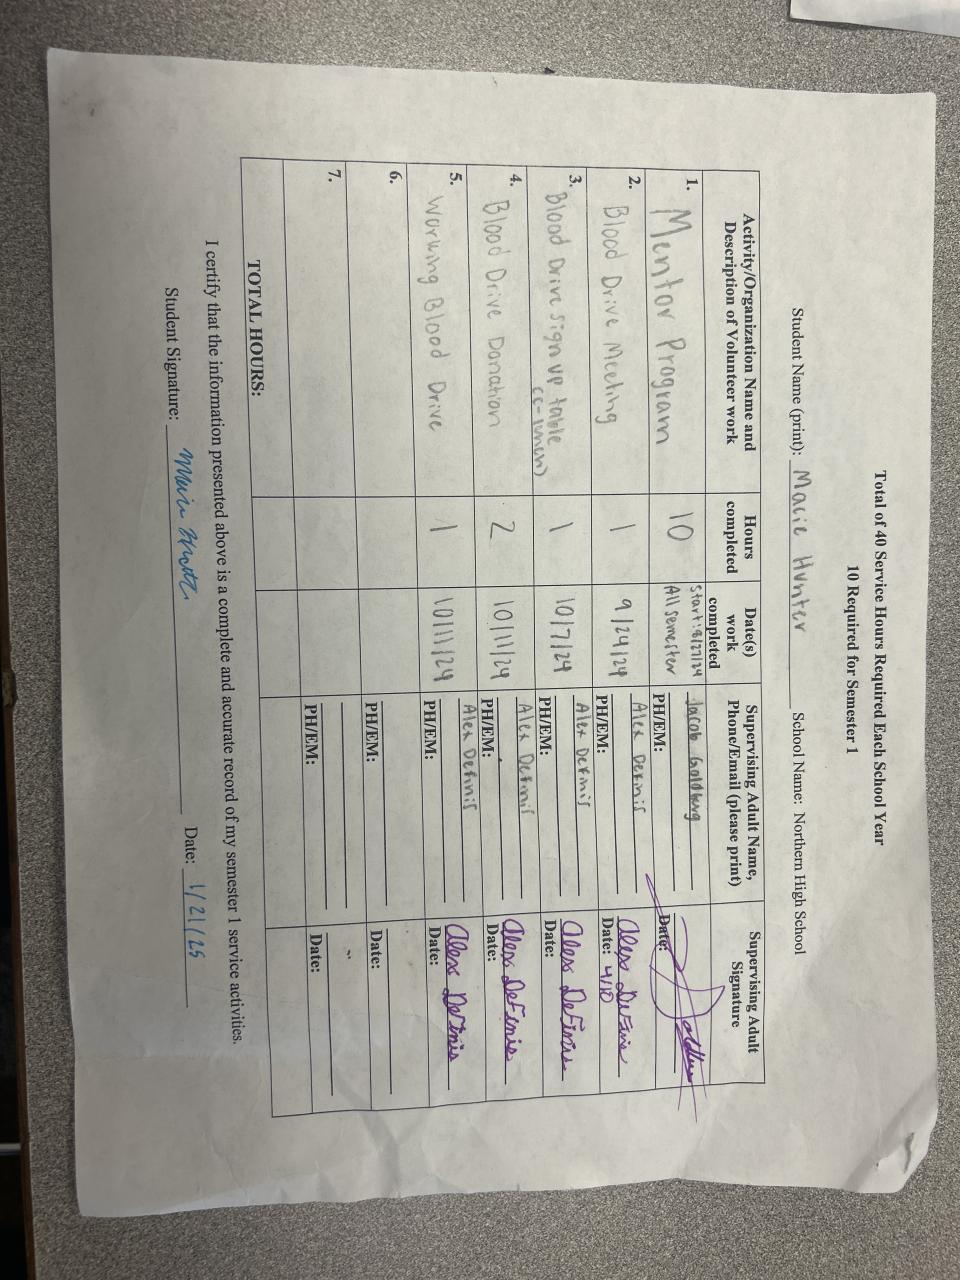 Total of 40 Service Hours Required Each School Year
10 Required for Semester 1
Student Name (print): Macie Hunter School Name: Northern High School
Activity/Organization Name and Description of Volunteer work
Hours completed
Date(s) work completed
Supervising Adult Name, Phone/Email (please print)
Supervising Adult Signature
1. Mentor Program 10 Start: 8/27/24 All semester Jacob Goldberg
PH/EM: Date:
2. Blood Drive Meeting 1 9/24/24 Alex
PH/EM: Date: 4/10
3. Blood Drive sign up table 1 10/7/24 Alex
PH/EM: Date:
4. Blood Drive Donation 2 10/11/24 Alex
PH/EM: Date:
5. Working Blood Drive 1 10/11/24 Alex Definis
PH/EM: Date:
6.
PH/EM: Date:
7.
PH/EM: Date:
TOTAL HOURS:
I certify that the information presented above is a complete and accurate record of my semester 1 service activities.
Student Signature: Date: 1/21/25